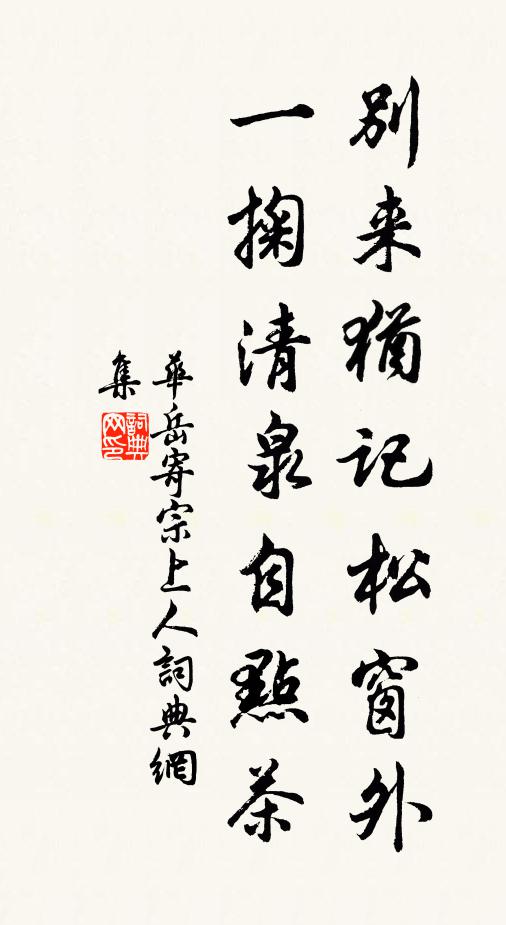 別来猶记松窗外
一掬清泉自點茶
華岳寄宗上人詞典網
集
詞典
网印